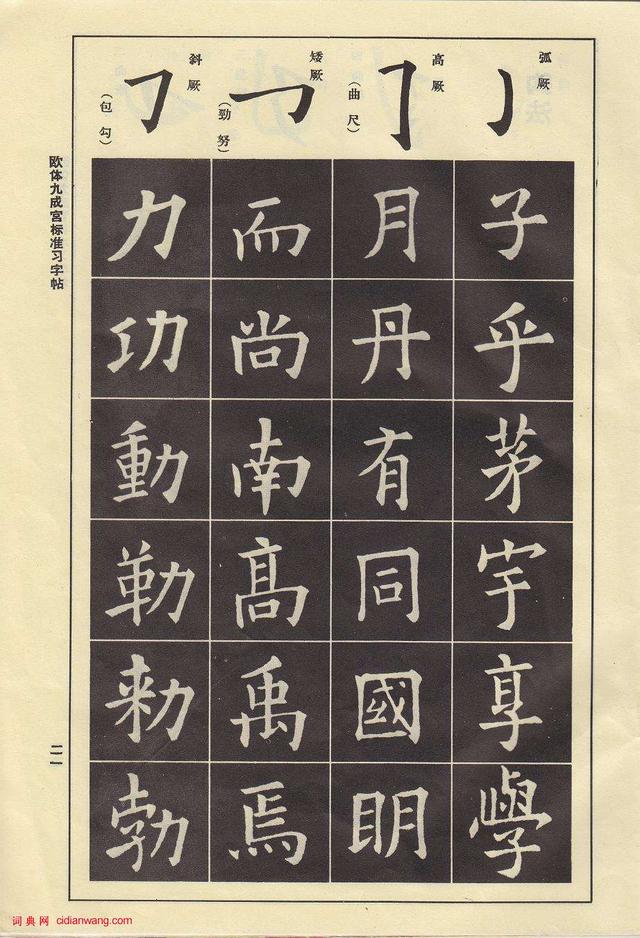 弧厥
子乎茅宇享學
高厥
（曲尺）
月丹有同國明
矮厥
（勁努）
而尚南髙禹焉
斜厥
（包勾）
力功動勒勑勃
欧体九成宫标准习字帖
二一
词典网 cidianwang.com